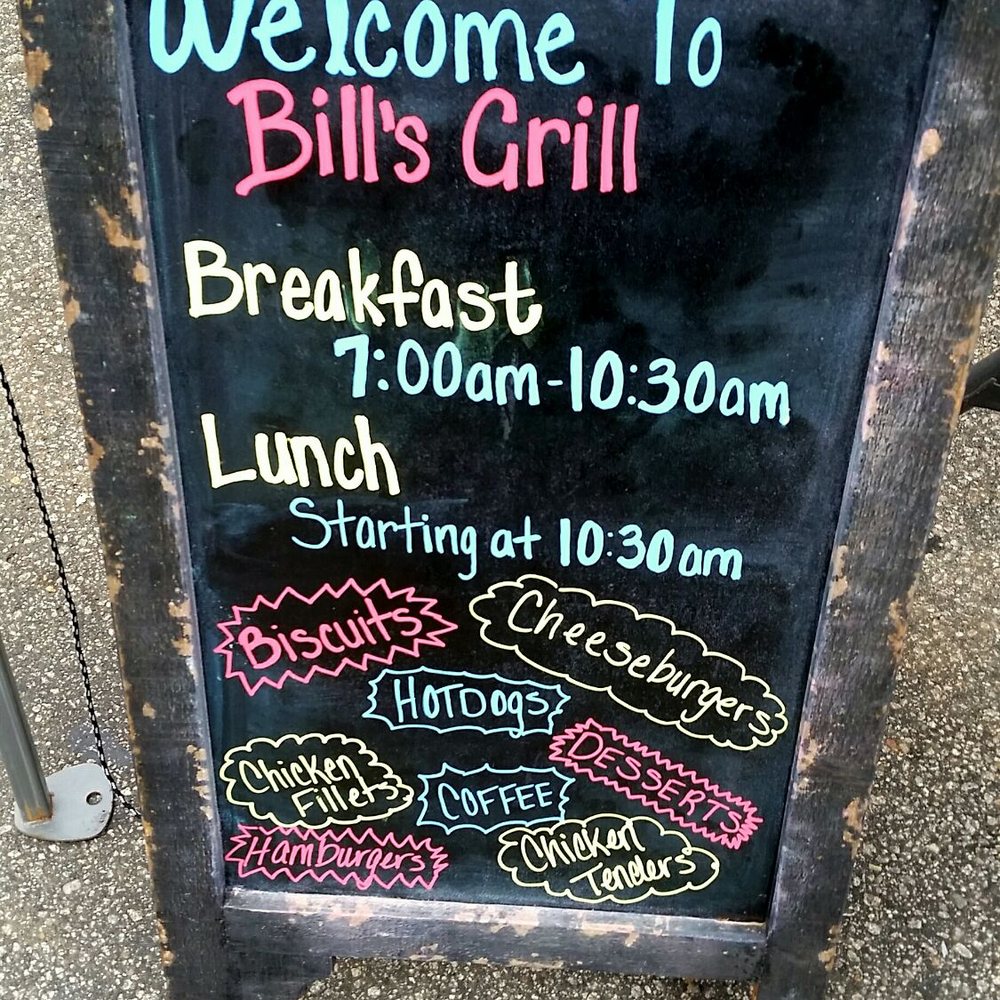 Welcome To
Bill's Grill
Breakfast
7:00am-10:30am
Lunch
Starting at 10:30am
Biscuits
Cheeseburgers
HOTDOgS
DESSERTS
Chicken
Fillets
COFFEE
Hamburgers
Chicken
Tenders